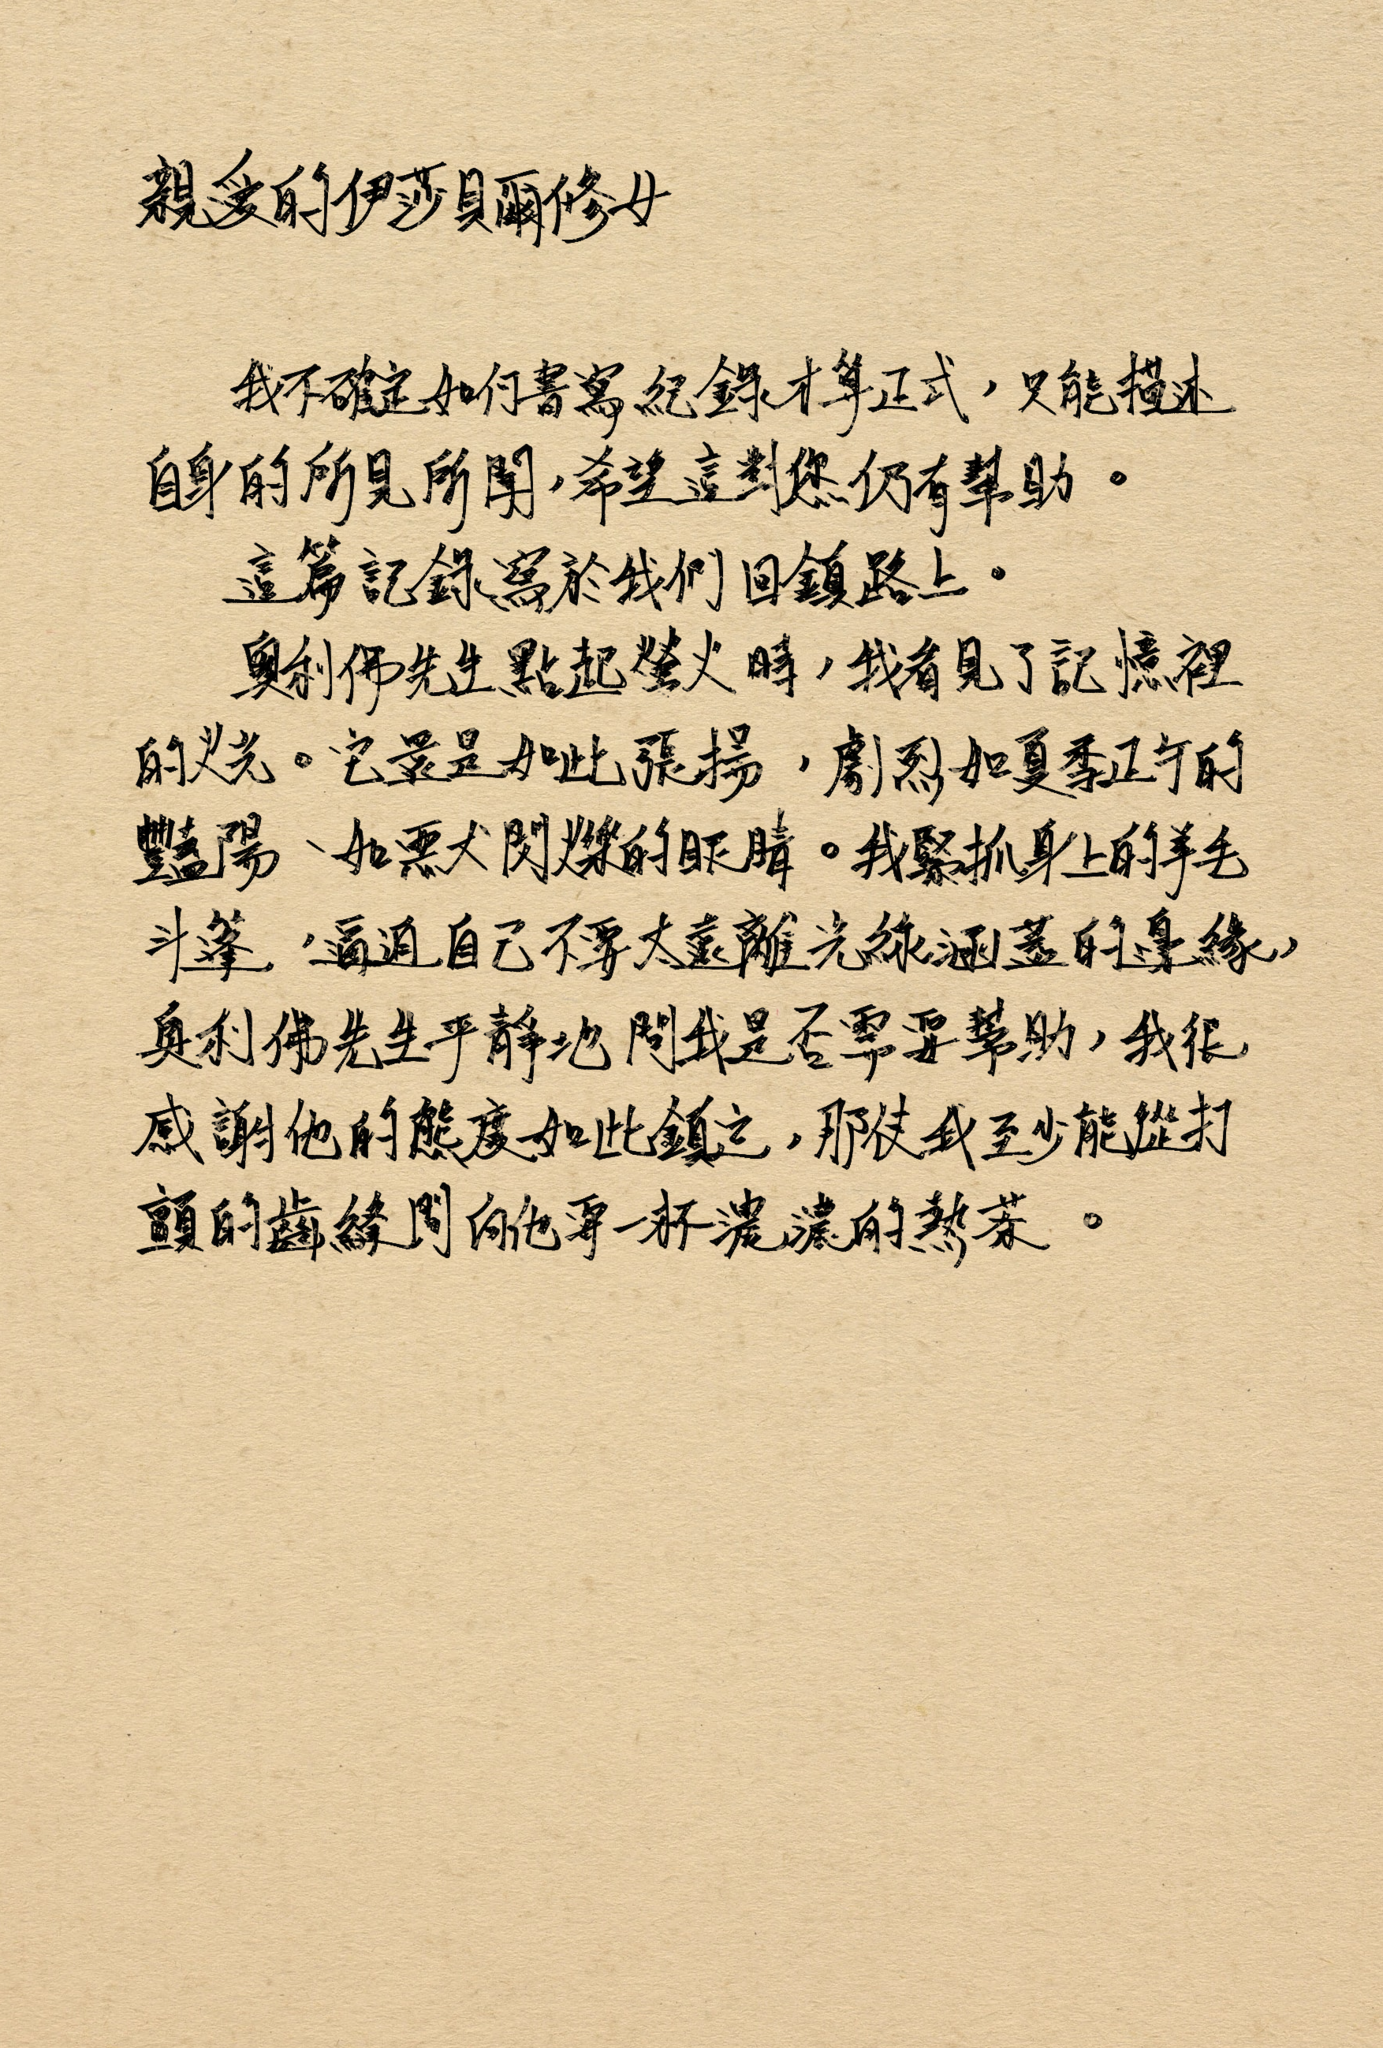 親愛的伊莎貝爾修女
我不確定如何書寫紀錄才算正式，只能描述
自身的所見所聞，希望這對您仍有幫助。
這篇記錄寫於我們回鎮路上。
奧利佛先生點起螢火時，我看見了記憶裡
的火光。它還是如此張揚，劇烈如夏季正午的
豔陽、如惡犬閃爍的眼睛。我緊抓身上的羊毛
斗篷，逼迫自己不要太遠離光線涵蓋的邊緣，
奧利佛先生平靜地問我是否需要幫助，我很
感謝他的態度如此鎮定，那使我至少能從打
顫的齒縫間向他要一杯濃濃的熱茶。